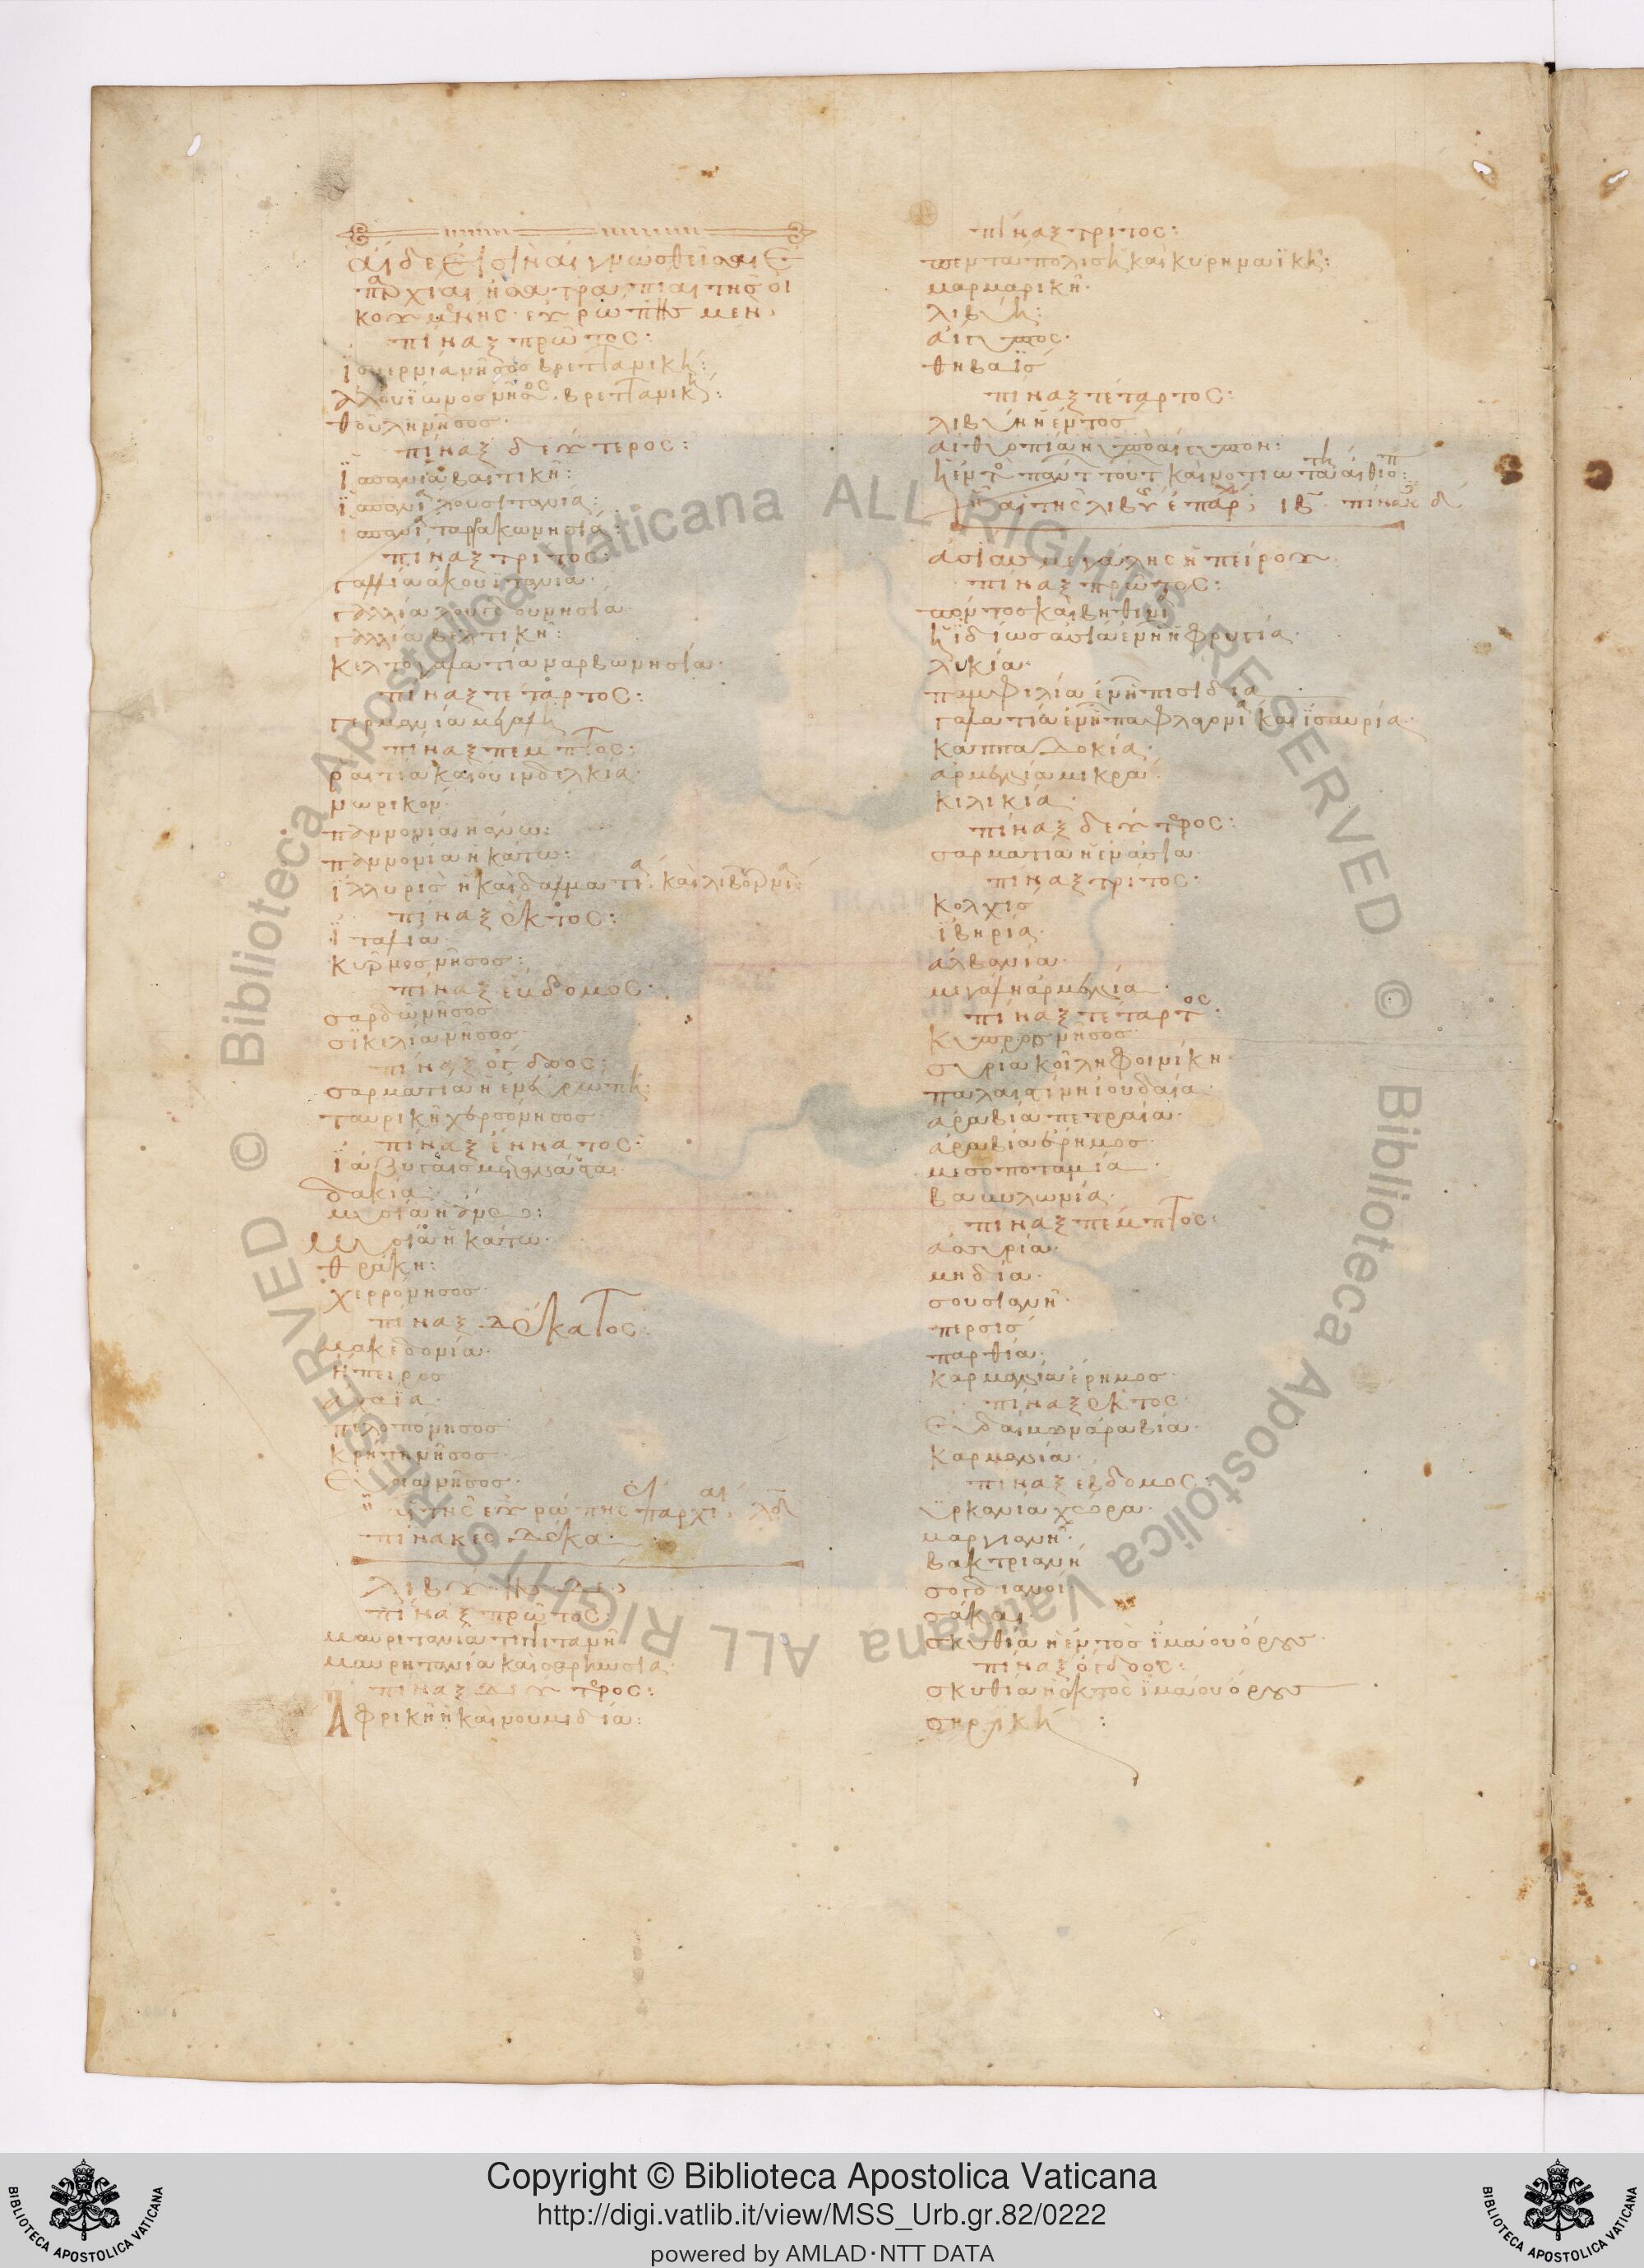 αἵδέ εἰσιν αἱ γνωσθεῖσαι ἐ
παρχίαι ἢ σατραπίαι τῆς οἰ
κουμένης· εὐρώπης μὲν·
πίναξ πρῶτος:
ἰουερνία νῆσος βρεττανική:
ἀλουΐωνος νῆσος· βρεττανική:
θούλη νῆσος·
πίναξ δεύτερος:
ἱσπανία βαιτική:
ἱσπανία λουσιτανία:
ἱσπανία ταρρακωνησία:
πίναξ τρίτος:
γαλλία ἀκουϊτανία·
γαλλία λουγδουνησία·
γαλλία βελτική:
κελτογαλατία ναρβωνησία·
πίναξ τέταρτος:
γερμανία μεγάλη
πίναξ πέμπτος:
ραιτία καὶ οὐινδελκία·
νωρικόν·
παννονία ἡ ἄνω:
παννονία ἡ κάτω:
ἰλλυρὶς ἡ καὶ δαλματία· καὶ λιβουρνία:
πίναξ ἕκτος:
ἰταλία·
κύρνος νῆσος:
πίναξ ἕβδομος:
σαρδὼ νῆσος
σικελία νῆσος·
πίναξ ὄγδοος:
σαρματία ἡ ἐν εὐρώπῃ:
ταυρικὴ χερσόνησος·
πίναξ ἔννατος:
ἰάζυγες μετανάσται·
δακία·
μυσία ἡ ἄνω:
μυσία ἡ κάτω·
θράκη:
χερρόνησος·
πίναξ δέκατος:
μακεδονία·
ἤπειρος
ἀχαΐα·
πελοπόνησος
κρήτη νῆσος·
εὔβοια νῆσος·
αἱ τῆς εὐρώπης ἐπαρχίαι· λδ
πίνακες δέκα·
λιβύης δέ·
πίναξ πρῶτος:
μαυριτανία τιγγιτανή
μαυρητανία καισαρησία
πίναξ δεύτερος:
ἀφρικὴ ἡ καὶ νουμιδία:
πίναξ τρίτος:
πεντάπολις ἡ καὶ κυρηναϊκή:
μαρμαρική·
λιβύη:
αἴγυπτος·
θηβαΐς
πίναξ τέταρτος:
λιβύη ἡ ἐντὸς
αἰθιοπία ἡ ὑπὸ αἴγυπτον:
αἱ τῆς λιβύης ἐπαρχ· ιβ· πίνακες δ
ἀσίας μεγάλης ἠπείρου
πίναξ πρῶτος:
πόντος καὶ βηθυνία
ἡ ἰδίως ἀσία ἐν ᾗ φρυγία·
λυκία·
παμφιλία ἐν ᾗ πισιδία·
γαλατία ἐν ᾗ παφλαγονία καὶ ἰσαυρία·
καππαδοκία·
ἀρμενία μικρά·
κιλικία·
πίναξ δεύτερος:
σαρματία ἡ ἐν ἀσίᾳ·
πίναξ τρίτος·
κολχὶς
ἰβηρία·
ἀλβανία·
μεγάλη ἀρμενία·
πίναξ τέταρτος:
κύπρος νῆσος·
συρία κοίλη φοινίκη·
παλαιστίνη ἰουδαία·
ἀραβία πετραία·
ἀραβία ἔρημος·
μεσοποταμία·
βαβυλωνία·
πίναξ πέμπτος:
ἀσσυρία·
μηδία·
σουσιανή·
περσὶς
παρθία·
καρμανία ἔρημος·
πίναξ ἕκτος·
εὐδαίμων ἀραβία·
καρμανία·
πίναξ ἕβδομος:
ὑρκανία χώρα·
μαργιανή·
βακτριανή
σογδιανοί
σάκαι·
σκυθία ἡ ἐντὸς ἰμάου ὄρους·
πίναξ ὄγδοος:
σκυθία ἡ ἐκτὸς ἰμάου ὄρους·
σηρική:
© Biblioteca Apostolica Vaticana ALL RIGHTS RESERVED © Biblioteca Apostolica Vaticana ALL RIGHTS RESERVED
Copyright © Biblioteca Apostolica Vaticana
http://digi.vatlib.it/view/MSS_Urb.gr.82/0222
powered by AMLAD·NTT DATA
BIBLIOTECA APOSTOLICA VATICANA
BIBLIOTECA APOSTOLICA VATICANA